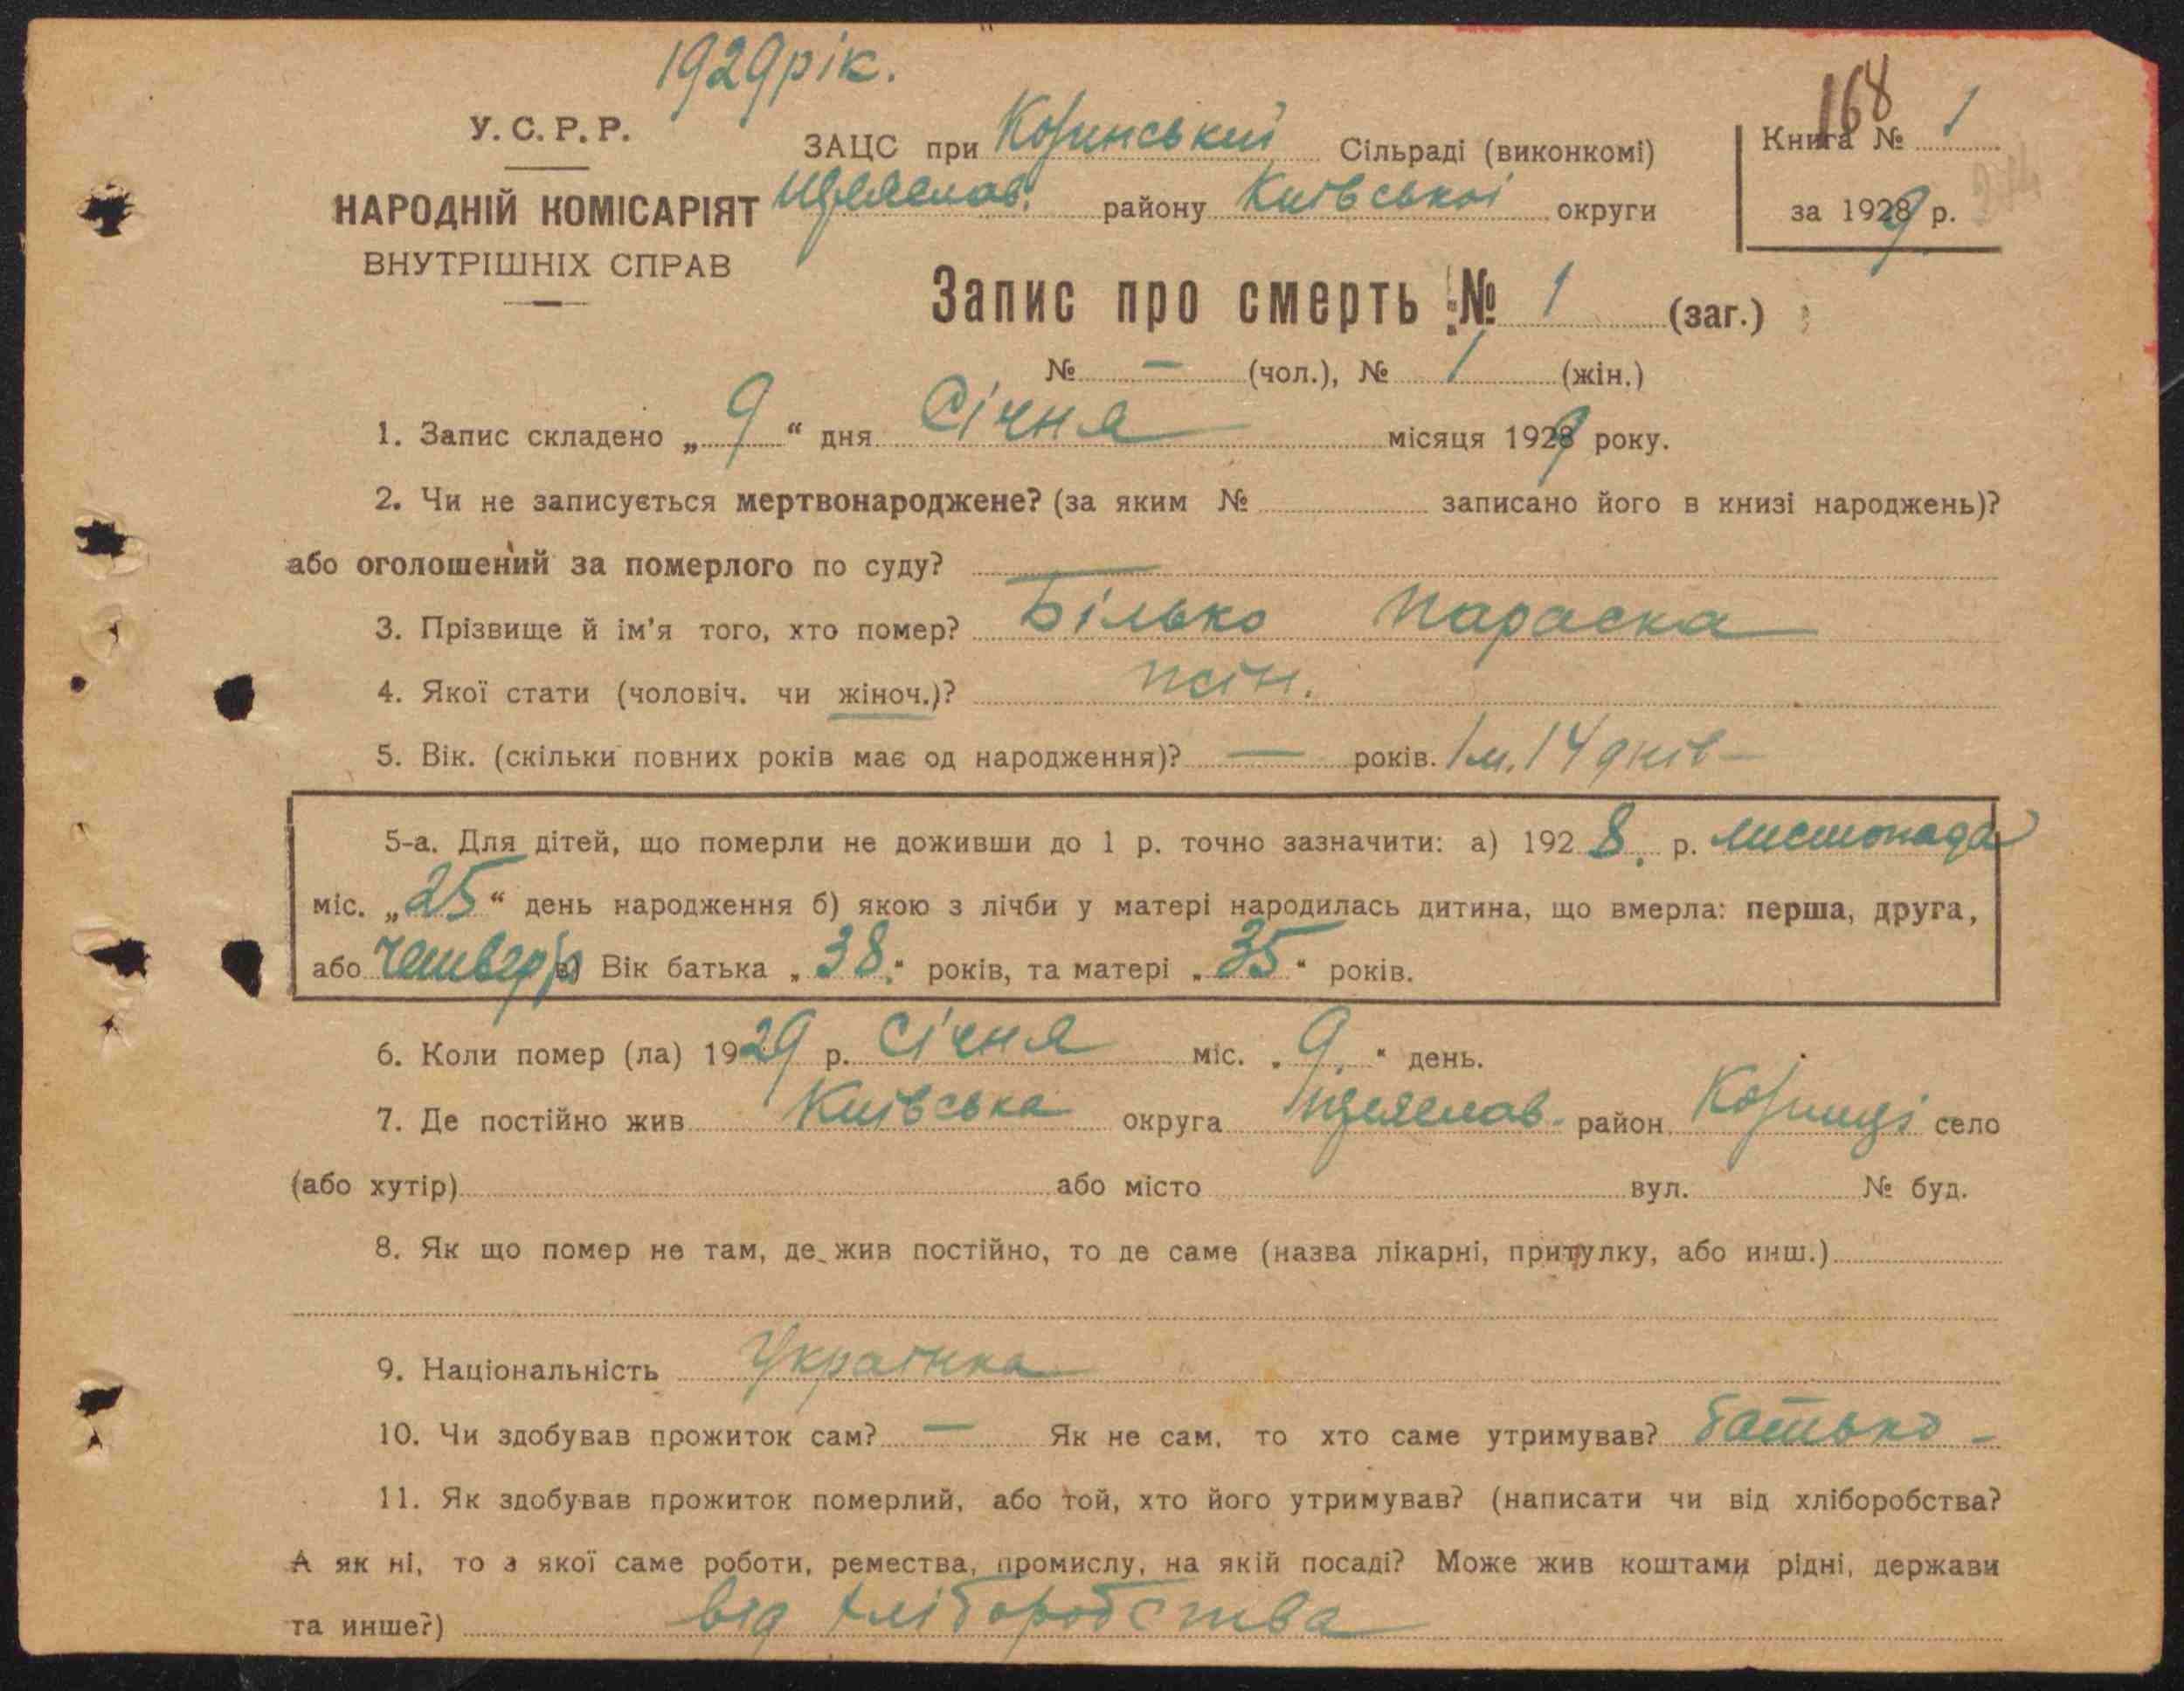 1929 рік.
168
У.С.Р.Р.
ЗАЦС при Сільраді (виконкомі)
Книга № 1
НАРОДНІЙ КОМІСАРІЯТ
району Київської округи
за 1929 р.
ВНУТРІШНІХ СПРАВ
Запис про смерть № 1 (заг.)
№ — (чол.), № 1 (жін.)
1. Запис складено „ 9 “ дня Січня місяця 1929 року.
2. Чи не записується мертвонароджене? (за яким № записано його в книзі народжень)?
або оголошений за померлого по суду? —
3. Прізвище й ім'я того, хто помер? Білько Параска
4. Якої стати (чоловіч. чи жіноч.)? жін.
5. Вік. (скільки повних років має од народження)? — років. 1 м. 14 днів —
5-а. Для дітей, що померли не доживши до 1 р. точно зазначити: а) 1928. р. листопада
міс. „ 25 “ день народження б) якою з лічби у матері народилась дитина, що вмерла: перша, друга,
або в) Вік батька „ 38. “ років, та матері „ 35 “ років.
6. Коли помер (ла) 1929 р. Січня міс. „ 9. “ день.
7. Де постійно жив Київська округа район село
(або хутір) або місто вул. № буд.
8. Як що помер не там, де жив постійно, то де саме (назва лікарні, притулку, або инш.)
9. Національність Українка
10. Чи здобував прожиток сам? — Як не сам, то хто саме утримував? батько —
11. Як здобував прожиток померлий, або той, хто його утримував? (написати чи від хліборобства?
А як ні, то з якої саме роботи, ремества, промислу, на якій посаді? Може жив коштами рідні, держави
та инше?) від хліборобства